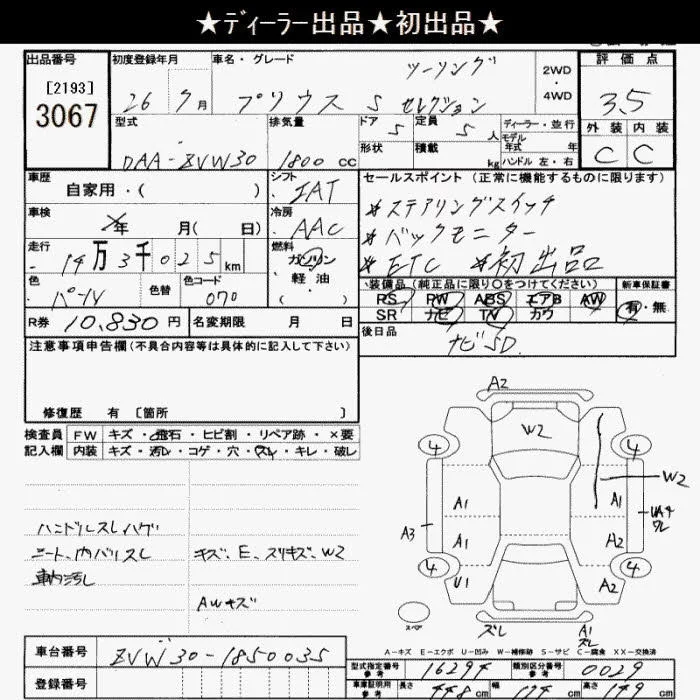 ★ディーラー出品★初出品★
出品番号
[2193]
3067
初度登録年月
26 7月
車名・グレード
ツーリング
プリウス S セレクション
2WD
・
4WD
評価点
3.5
外装 内装
C C
型式
DAA-ZVW30
排気量
1800 cc
ドア 5
定員 5 人
形状
積載 kg
ディーラー・並行
モデル年式 年
ハンドル 左・右
車歴
自家用・( )
シフト
IAT
車検
年 月( 日)
冷房
AAC
走行
14万3千025km
燃料
ガソリン
軽油
・( )
色
パール
色替
色コード
070
R券 10,830円
名変期限 月 日
セールスポイント(正常に機能するものに限ります)
*ステアリングスイッチ
*バックモニター
*ETC *初出品
装備品(純正品に限り○をつけてください)
新車保証書
PS PW ABS エアB AW
SR ナビ TV カワ
有・無
後日品
ナビSD
注意事項申告欄(不具合内容等は具体的に記入して下さい)
修復歴 有 [箇所 ]
検査員記入欄
FW キズ・飛石・ヒビ割・リペア跡・×要
内装 キズ・汚れ・コゲ・穴・スレ・キレ・破レ
ハンドルスレハゲ
シート、内バリスレ
車内汚レ
キズ、E、スリキズ、W2
AWキズ
A2
W2
4 4
W2
A1 A1
A3 A1 A2
U1 A2
4 4
スペア
スレ
A1
スレ
A-キズ E-エクボ U-凹み W-補修跡 S-サビ C-腐食 XX-交換済
車台番号 ZVW30-1850035
登録番号
型式指定番号 参考 16294
類別区分番号 参考 0029
車庫証明用 参考 長さ 448cm 幅 174cm 高さ 149cm